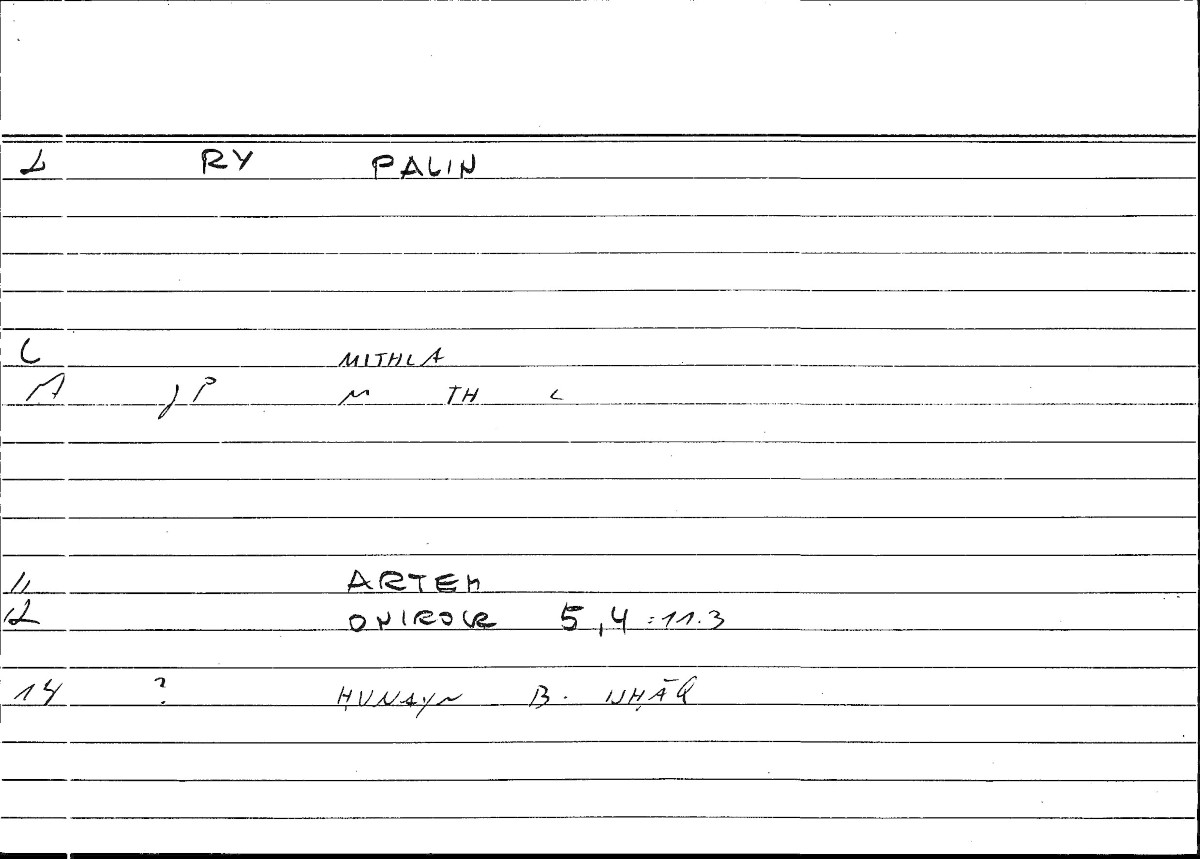 RY PALIN
C MITHLA
A JP M TH L
11 ARTEM
12 ONIROCR 5,4 :11.3
14 ? ḤUNAYN B. IṢḤĀQ